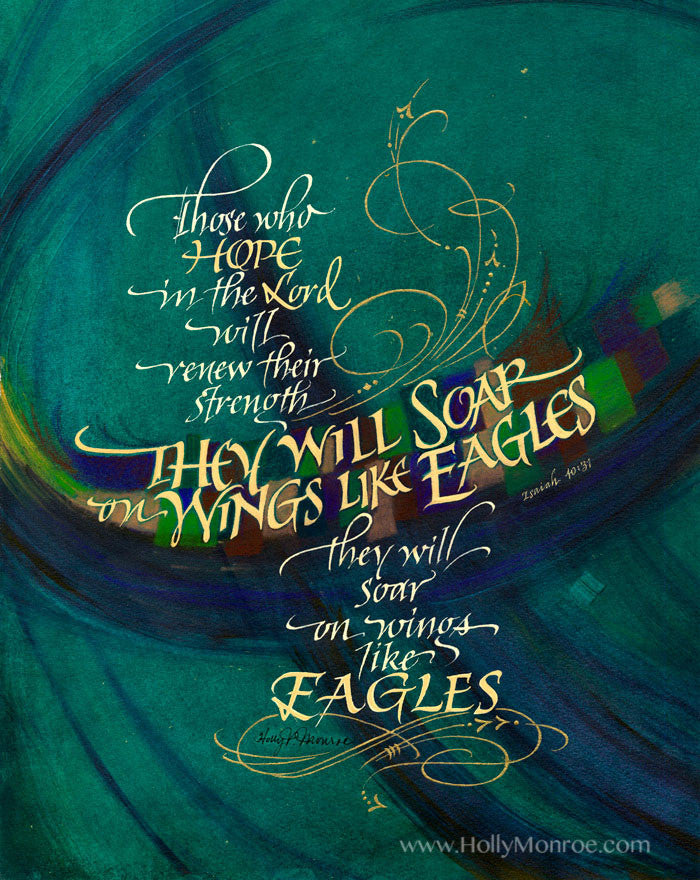 Those who
HOPE
in the Lord
will
renew their
strength
THEY WILL SOAR
on WINGS LIKE EAGLES
Isaiah 40:31
they will
soar
on wings
like
EAGLES
Holly V. Monroe
www.HollyMonroe.com